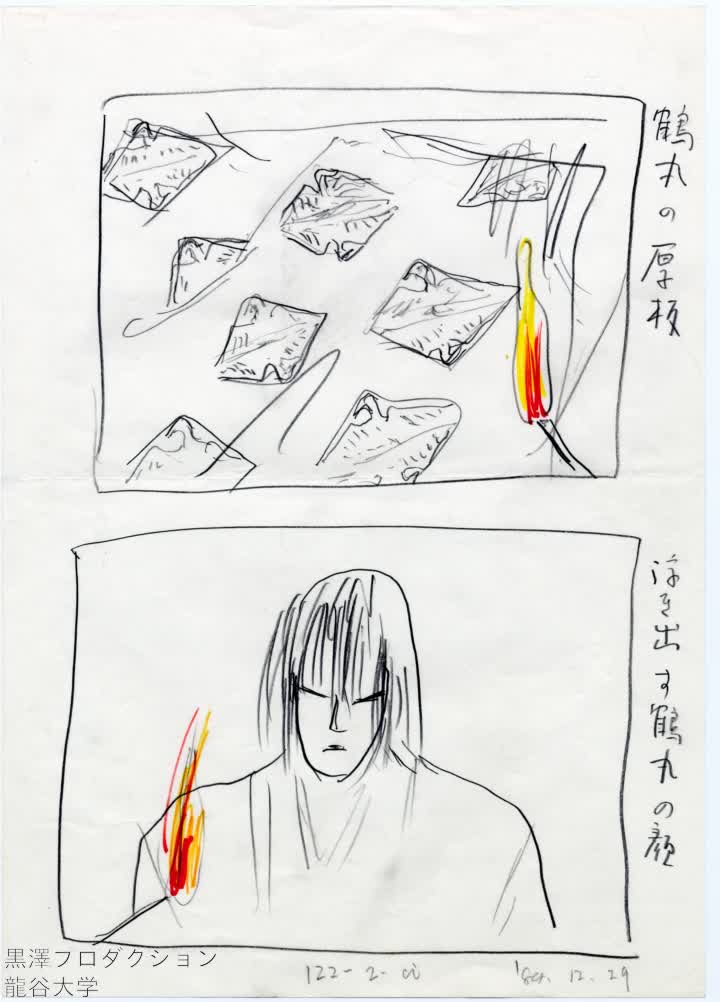 鶴丸の厚板
浮き出す鶴丸の顔
黒澤プロダクション
龍谷大学
122-2-
12.29